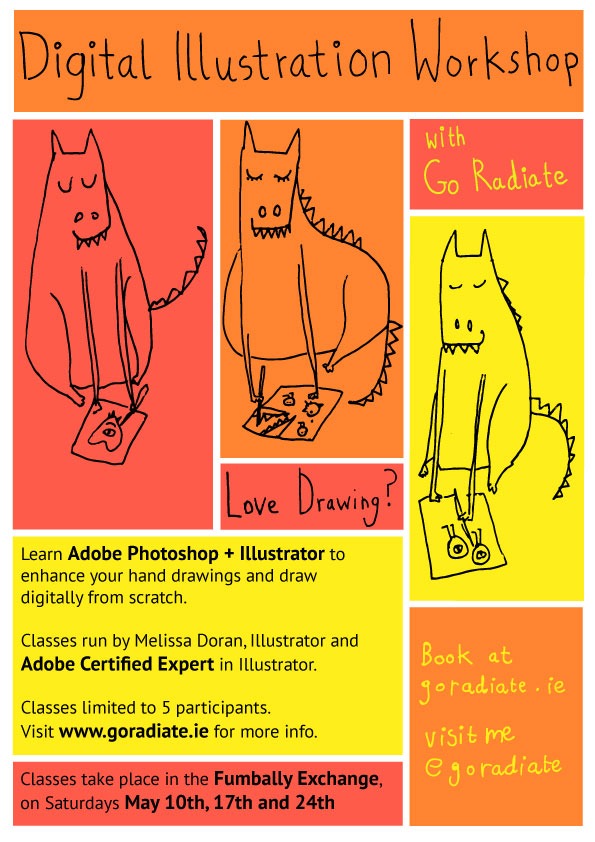 Digital Illustration Workshop
with
Go Radiate
Love Drawing?
Learn Adobe Photoshop + Illustrator to
enhance your hand drawings and draw
digitally from scratch.
Classes run by Melissa Doran, Illustrator and
Adobe Certified Expert in Illustrator.
Classes limited to 5 participants.
Visit www.goradiate.ie for more info.
Classes take place in the Fumbally Exchange,
on Saturdays May 10th, 17th and 24th
Book at
goradiate.ie
visit me
@goradiate